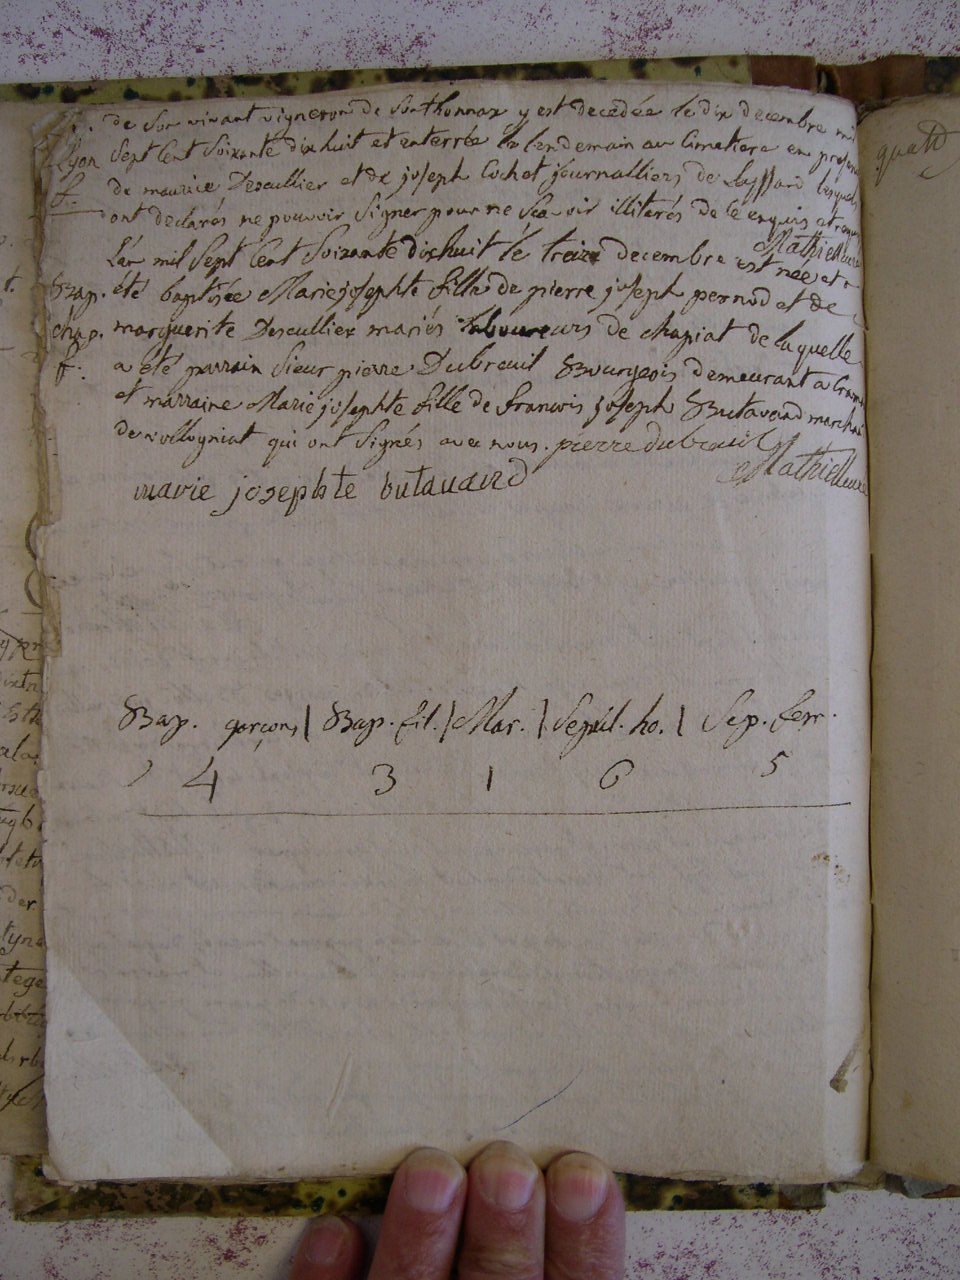 de son vivant vigneron de Sonthonnax y est decedée le dix decembre mil
Sept Cent Soixante dix huit et enterrée le lendemain au Cimetiere en presence
de maurice Descullier et de joseph Cochet journalliers de lesquels
ont declarés ne pouvoir Signer pour ne Sçavoir illiterés de ce enquis et requis
Mathieu
L'an mil Sept Cent Soixante dixhuit le treize decembre est née et a
Bap. été baptisée Mariejosephte fille de pierre joseph pernod et de
chap. marguerite Descullier mariés laboureurs de chapiat de laquelle
f. a été parrain Sieur pierre Dubreuil Bourgeois demeurant a
et marraine Marie josephte fille de francois joseph Butavand marchand
de volognat qui ont Signés avec nous. pierre dubreuil
marie josephte butavand
Bap. garçons | Bap. fil. | Mar. | Sepul. ho. | Sep. fem.
4 3 1 6 5